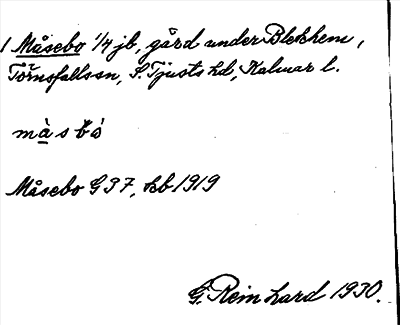 1 Måsebo 1/4 jb, gård under Blekhem,
Törnsfallssn, S. Tjusts hd, Kalmar l.
må̀sbó
Måsebo G 37, kb 1919
G. Reinhard 1930.